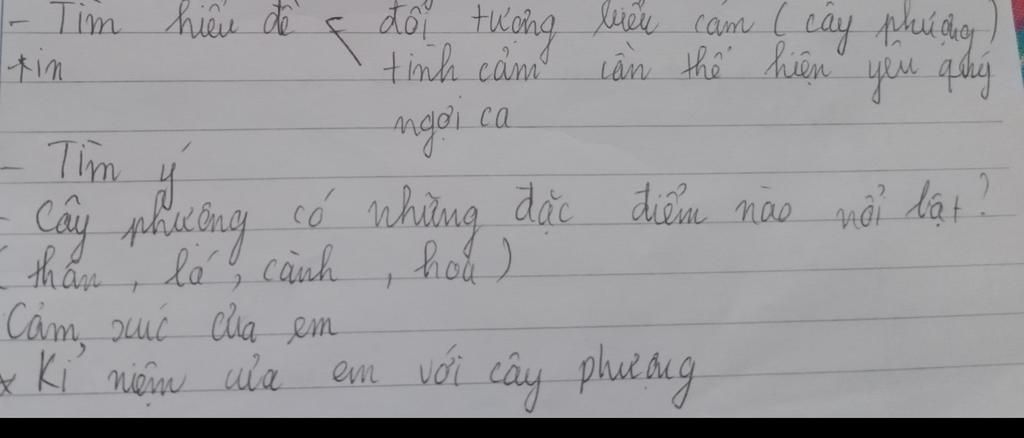 - Tìm hiểu đề < đối tượng biểu cảm (cây phượng)
tìn tình cảm cần thể hiện yêu quý
ngợi ca
- Tìm ý
- Cây phượng có những đặc điểm nào nổi bật?
( thân, lá, cành, hoa)
Cảm xúc của em
x Kỉ niệm của em với cây phượng